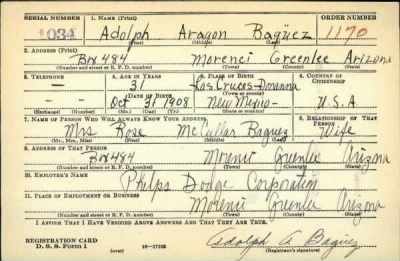 SERIAL NUMBER 1. NAME (Print) ORDER NUMBER
034 Adolph Aragon Bagüez 1170
(First) (Middle) (Last)
2. ADDRESS (Print)
Box 484 Morenci Greenlee Arizona
(Number and street or R. F. D. number) (Town) (County) (State)
3. TELEPHONE 4. AGE IN YEARS 5. PLACE OF BIRTH 6. COUNTRY OF CITIZENSHIP
— 31 Las Cruces-
(Town or county)
DATE OF BIRTH
— Oct 31 1908 New Mexico- U.S.A
(Exchange) (Number) (Mo.) (Day) (Yr.) (State or country)
7. NAME OF PERSON WHO WILL ALWAYS KNOW YOUR ADDRESS 8. RELATIONSHIP OF THAT PERSON
Mrs Rose McCullar Baguez Wife
(Mr., Mrs., Miss) (First) (Middle) (Last)
9. ADDRESS OF THAT PERSON
Box 484 Morenci Greenlee Arizona
(Number and street or R. F. D. number) (Town) (County) (State)
10. EMPLOYER'S NAME
Phelps Dodge Corporation
11. PLACE OF EMPLOYMENT OR BUSINESS
Morenci Greenlee Arizona
(Number and street or R. F. D. number) (Town) (County) (State)
I AFFIRM THAT I HAVE VERIFIED ABOVE ANSWERS AND THAT THEY ARE TRUE.
REGISTRATION CARD
D. S. S. Form 1 (over) 16-17105 Adolph A Bagüez
(Registrant's signature)